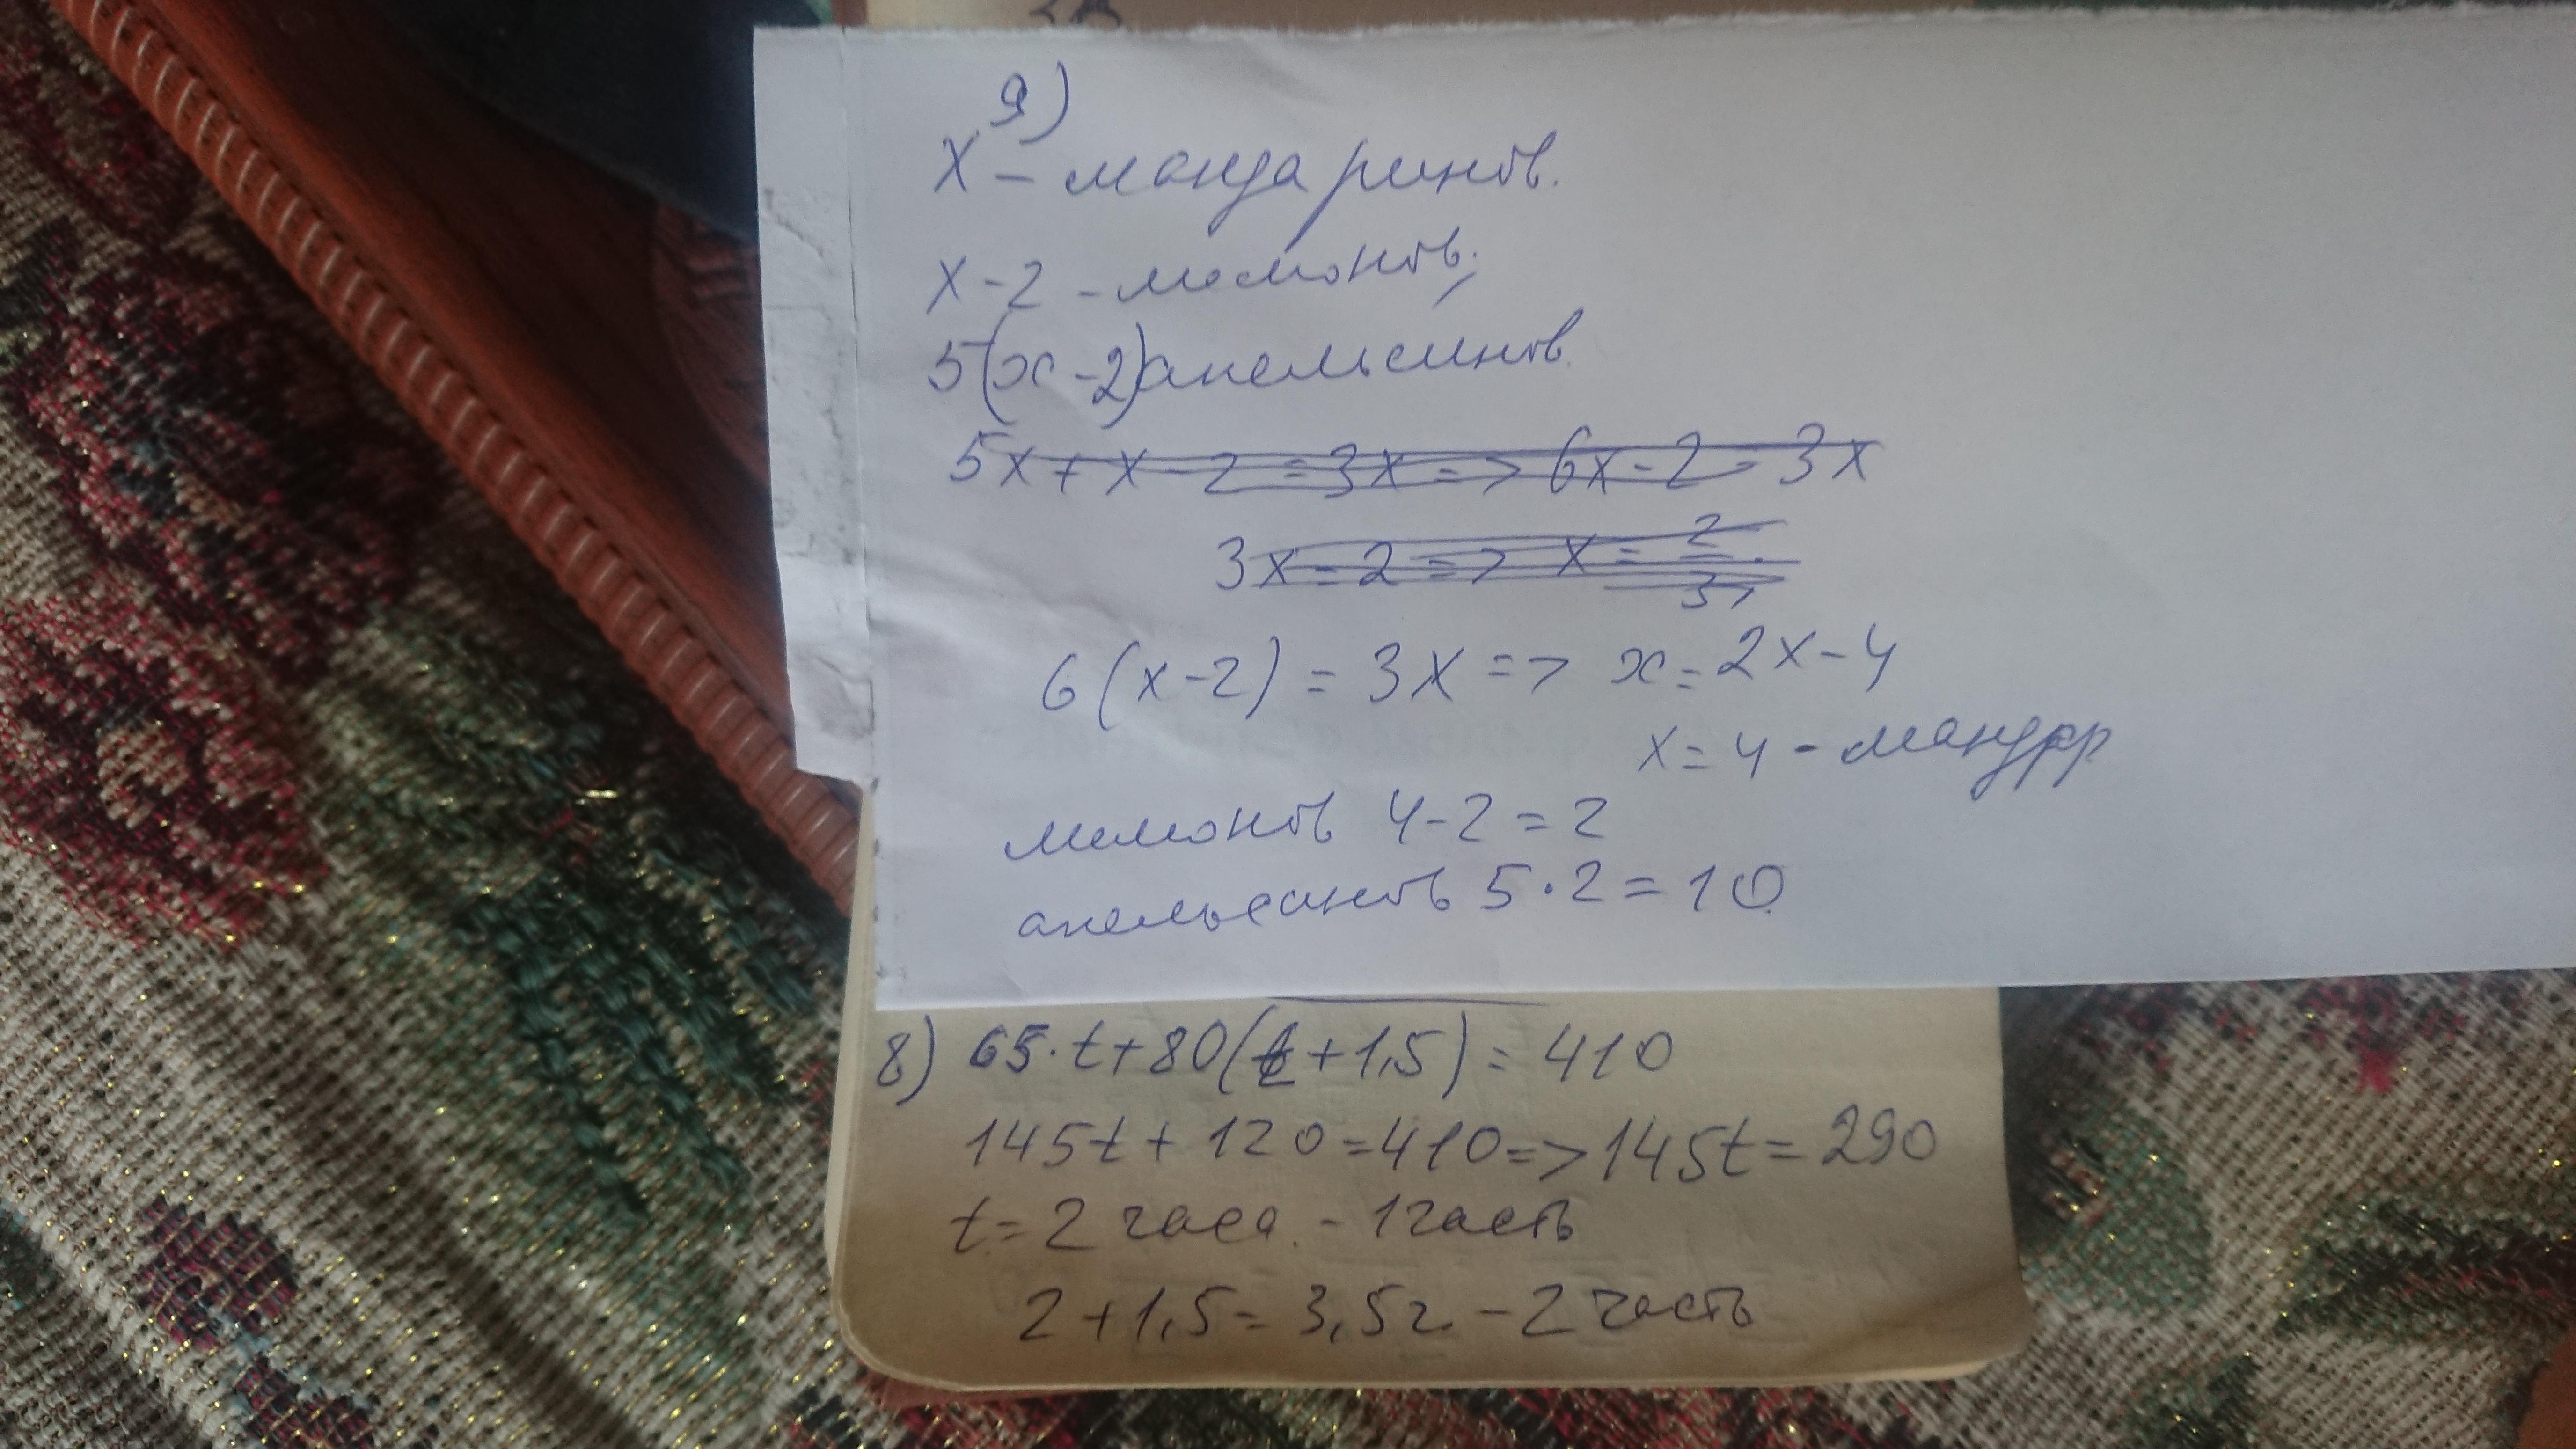 9)
x – мандаринов.
x - 2 - лимонов.
5(x - 2) апельсинов
5x + x - 2 = 3x => 6x - 2 = 3x
3x = 2 => x = 2/3
6(x-2) = 3x => x = 2x - 4
x = 4 - мандар
лимонов 4 - 2 = 2
апельсинов 5 · 2 = 10
8) 65 · t + 80(t + 1,5) = 410
145t + 120 = 410 => 145t = 290
t = 2 часа. - 1 часть
2 + 1,5 = 3,5 ч. - 2 часть